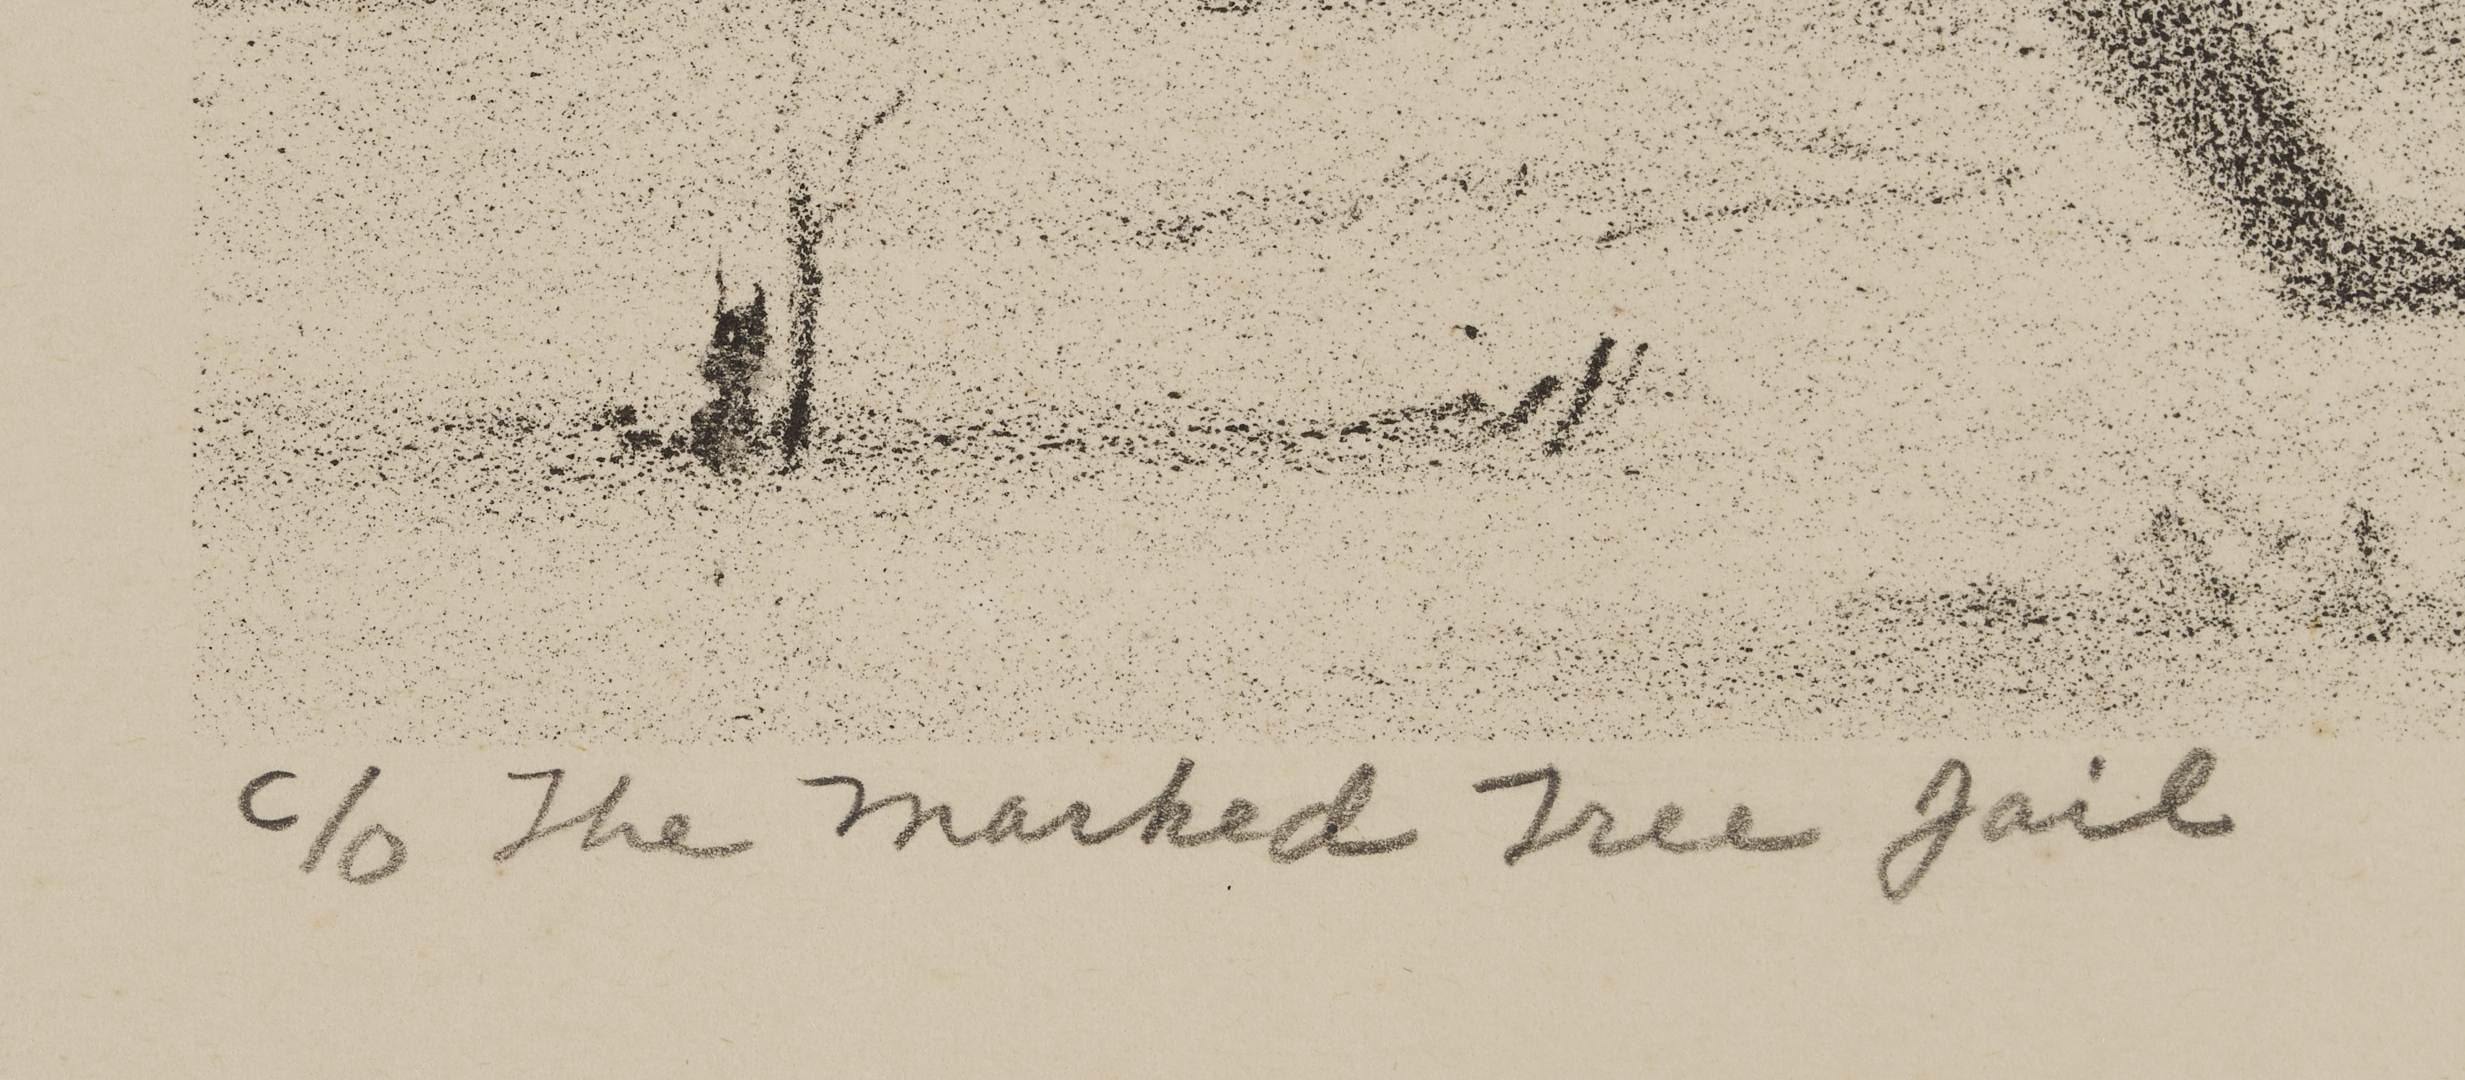 c/o The Marked Tree Jail